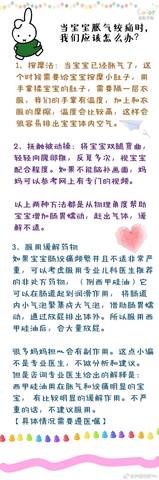 当宝宝胀气绞痛时,
我们应该怎么办?
1、按摩法:当宝宝已经胀气了,这
个时候需要给宝宝按摩小肚子,用
手掌揉宝宝的肚子,需要隔一层衣
服,我们的手掌有温度,加上和衣
服的摩擦,温度会比较高,这样会
很容易排出宝宝体内空气。
2、抚触被动操:将宝宝双腿弯曲,
轻轻向腹部推,反复多次,视宝宝
配合程度。如果不能脑补画面,妈
妈可以参考网上有专门的视频。
以上两种方法都是从物理角度帮助
宝宝增加肠胃蠕动,赶出气体,缓
解不适。
3、服用缓解药物
如果宝宝肠绞痛频繁并且不适非常严
重,可以考虑服用专业儿科医生推荐
的非处方药物,(例西甲硅油)它
可以在肠道起到润滑作用,将肠道
内小气泡聚集成大气泡,借助肠胃蠕
动,通过放屁排出体外。所以服用西
甲硅油后,会大量放屁。
很多妈妈担心会有副作用。这点小编
不是专业医生,不做分析和建议。
但是咨询专业医生给出的解释是:
西甲硅油用在胀气和绞痛明显的宝
宝,有比较明显的缓解作用。不严
重的话,不建议服用。
【具体情况需要遵医嘱】